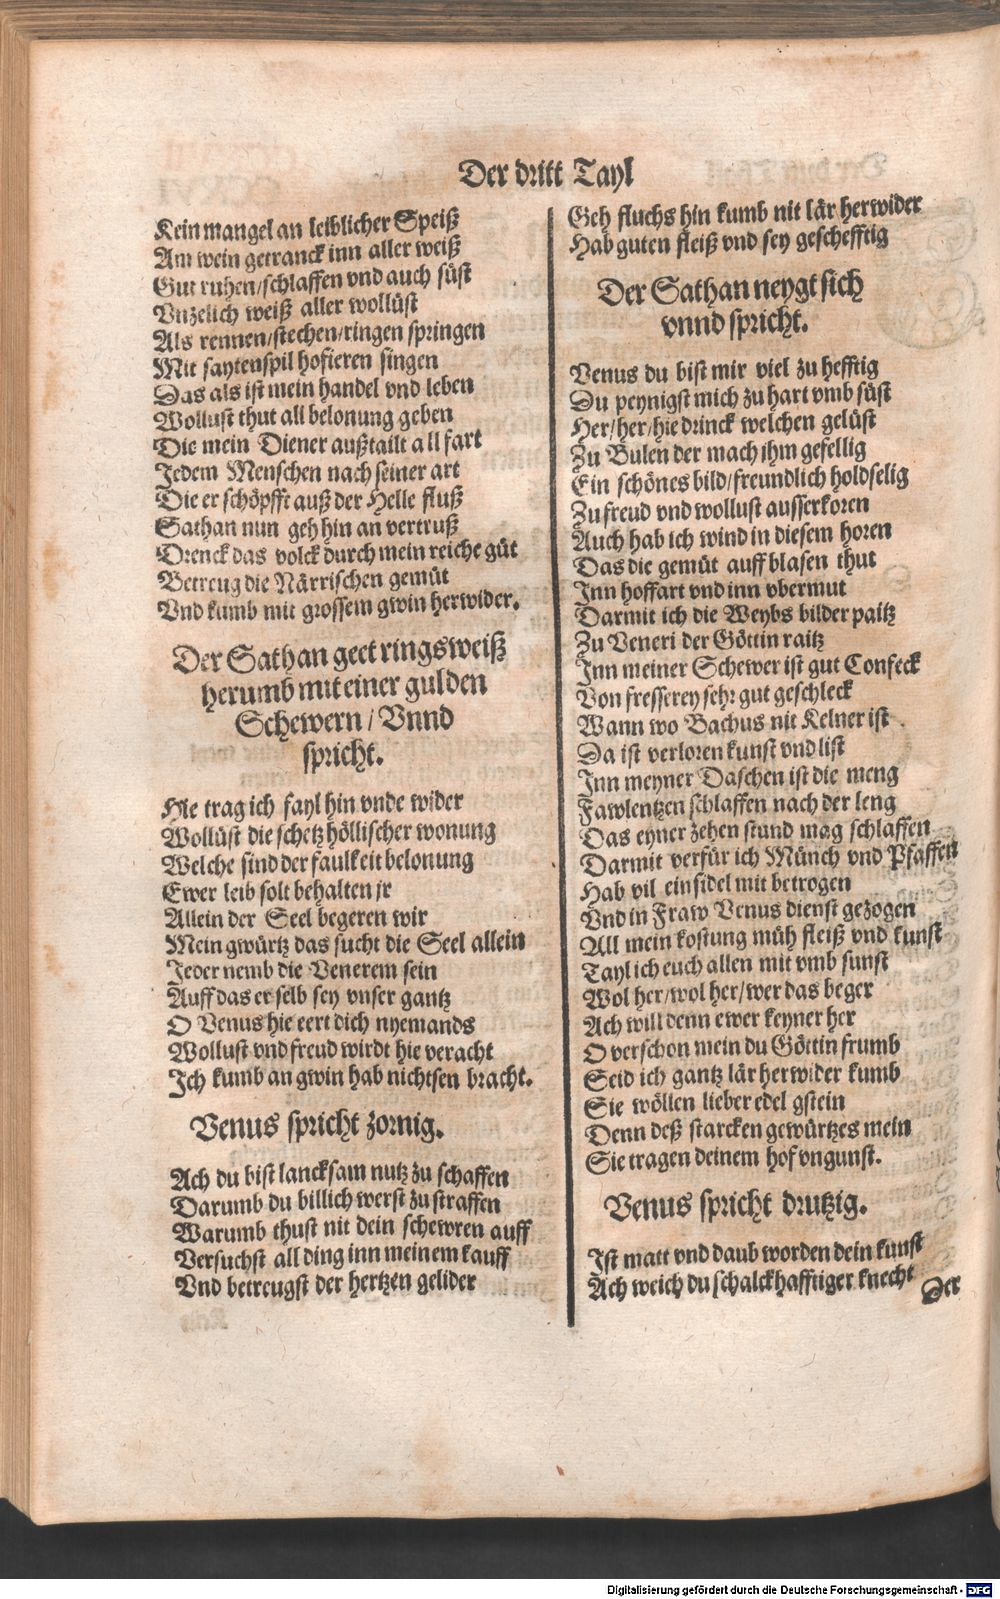 Der dritt Tayl
Kein mangel an leiblicher Speiß
Am wein getranck inn aller weiß
Gut ruhen/schlaffen vnd auch süst
Vnzelich weiß aller wollüst
Als rennen/stechen/ringen springen
Mit saytenspil hofieren singen
Das als ist mein handel vnd leben
Wollust thut all belonung geben
Die mein Diener außtailt all fart
Jedem Menschen nach seiner art
Die er schöpfft auß der Helle fluß
Sathan nun geh hin an vertruß
Drenck das volck durch mein reiche güt
Betreug die Närrischen gemüt
Vnd kumb mit grossem gwin herwider.
Der Sathan geet ringsweiß
herumb mit einer gulden
Schewern/ Vnnd
spricht.
Hie trag ich fayl hin vnde wider
Wollüst die schetz höllischer wonung
Welche sind der faulkeit belonung
Ewer leib solt behalten jr
Allein der Seel begeren wir
Mein gwürtz das sucht die Seel allein
Jeder nemb die Venerem sein
Auff das er selb sey vnser gantz
O Venus hie eert dich nyemands
Wollust vnd freud wirdt hie veracht
Ich kumb an gwin hab nichtsen bracht.
Venus spricht zornig.
Ach du bist lancksam nutz zu schaffen
Darumb du billich werst zu straffen
Warumb thust nit dein schewren auff
Versuchst all ding inn meinem kauff
Vnd betreugst der hertzen gelider
Geh fluchs hin kumb nit lär herwider
Hab guten fleiß vnd sey geschefftig
Der Sathan neygt sich
vnnd spricht.
Venus du bist mir viel zu hefftig
Du peynigst mich zu hart vmb süst
Her/her/hie drinck welchen gelüst
Zu Bulen der mach ihm gefellig
Ein schönes bild/freundlich holdselig
Zu freud vnd wollust ausserkoren
Auch hab ich wind in diesem horen
Das die gemüt auff blasen thut
Inn hoffart vnd inn vbermut
Darmit ich die Weybs bilder paitz
Zu Veneri der Göttin raitz
Inn meiner Schewer ist gut Confeck
Von fresserey sehr gut geschleck
Wann wo Bachus nit Kelner ist
Da ist verloren kunst vnd list
Inn meyner Daschen ist die meng
Fawlentzen schlaffen nach der leng
Das eyner zehen stund mag schlaffen
Darmit verfür ich Münch vnd Pfaffen
Hab vil einsidel mit betrogen
Vnd in Fraw Venus dienst gezogen
All mein kostung müh fleiß vnd kunst
Tayl ich euch allen mit vmb sunst
Wol her/wol her/wer das beger
Ach will denn ewer keyner her
O verschon mein du Göttin frumb
Seid ich gantz lär herwider kumb
Sie wöllen lieber edel gstein
Denn deß starcken gewürtzes mein
Sie tragen deinem hof vngunst.
Venus spricht drutzig.
Ist matt vnd daub worden dein kunst
Ach weich du schalckhafftiger knecht
Der
Digitalisierung gefördert durch die Deutsche Forschungsgemeinschaft - DFG